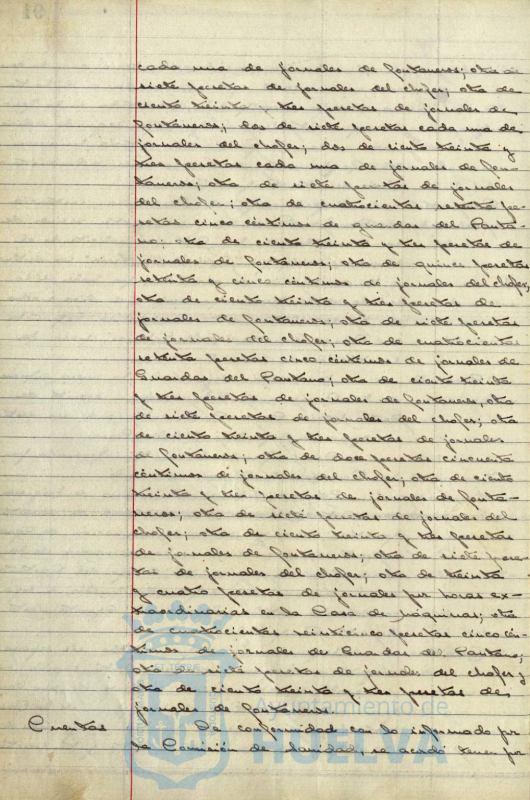 cada una de jornales de fontaneros; otra de
siete pesetas de jornales del chofer; otra de
ciento treinta y tres pesetas de jornales de
fontaneros; dos de siete pesetas cada una de
jornales del chofer; dos de ciento treinta y
tres pesetas cada una de jornales de fon-
taneros; otra de siete pesetas de jornales
del chofer; otra de cuatrocientas setenta pe-
setas cinco céntimos de guardas del Panta-
no; otra de ciento treinta y tres pesetas de
jornales de fontaneros; otra de quince pesetas
setenta y cinco céntimos de jornales del chofer;
otra de ciento treinta y tres pesetas de
jornales de fontaneros; otra de siete pesetas
de jornales del chofer; otra de cuatrocientas
setenta pesetas cinco céntimos de jornales de
Guardas del Pantano; otra de ciento treinta
y tres pesetas de jornales de fontaneros, otra
de siete pesetas de jornales del chofer; otra
de ciento treinta y tres pesetas de jornales
de fontaneros; otra de doce pesetas cincuenta
céntimos de jornales del chofer; otra de ciento
treinta y tres pesetas de jornales de fonta-
neros; otra de siete pesetas de jornales del
chofer; otra de ciento treinta y tres pesetas
de jornales de fontaneros; otra de siete pese-
tas de jornales del chofer; otra de treinta
y cuatro pesetas de jornales por horas ex-
traordinarias en la Casa de máquinas; otra
de cuatrocientas veinticinco pesetas cinco cén-
timos de jornales de Guardas del Pantano;
otra de siete pesetas de jornales del chofer y
otra de ciento treinta y tres pesetas de
jornales de fontaneros.
Cuentas De conformidad con lo informado por
la Comisión de Sanidad, se acordó tener por
Ayuntamiento de
HUELVA